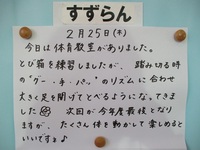 すずらん
2月25日(木)
今日は体育教室がありました。
とび箱を練習しましたが、踏み切る時
の"グー・手・パッ"のリズムに合わせ
大きく足を開げてとべるようになってきまし
た 次回が今年度最後となり
ますが、たくさん体を動かして楽しめると
いいですね♪